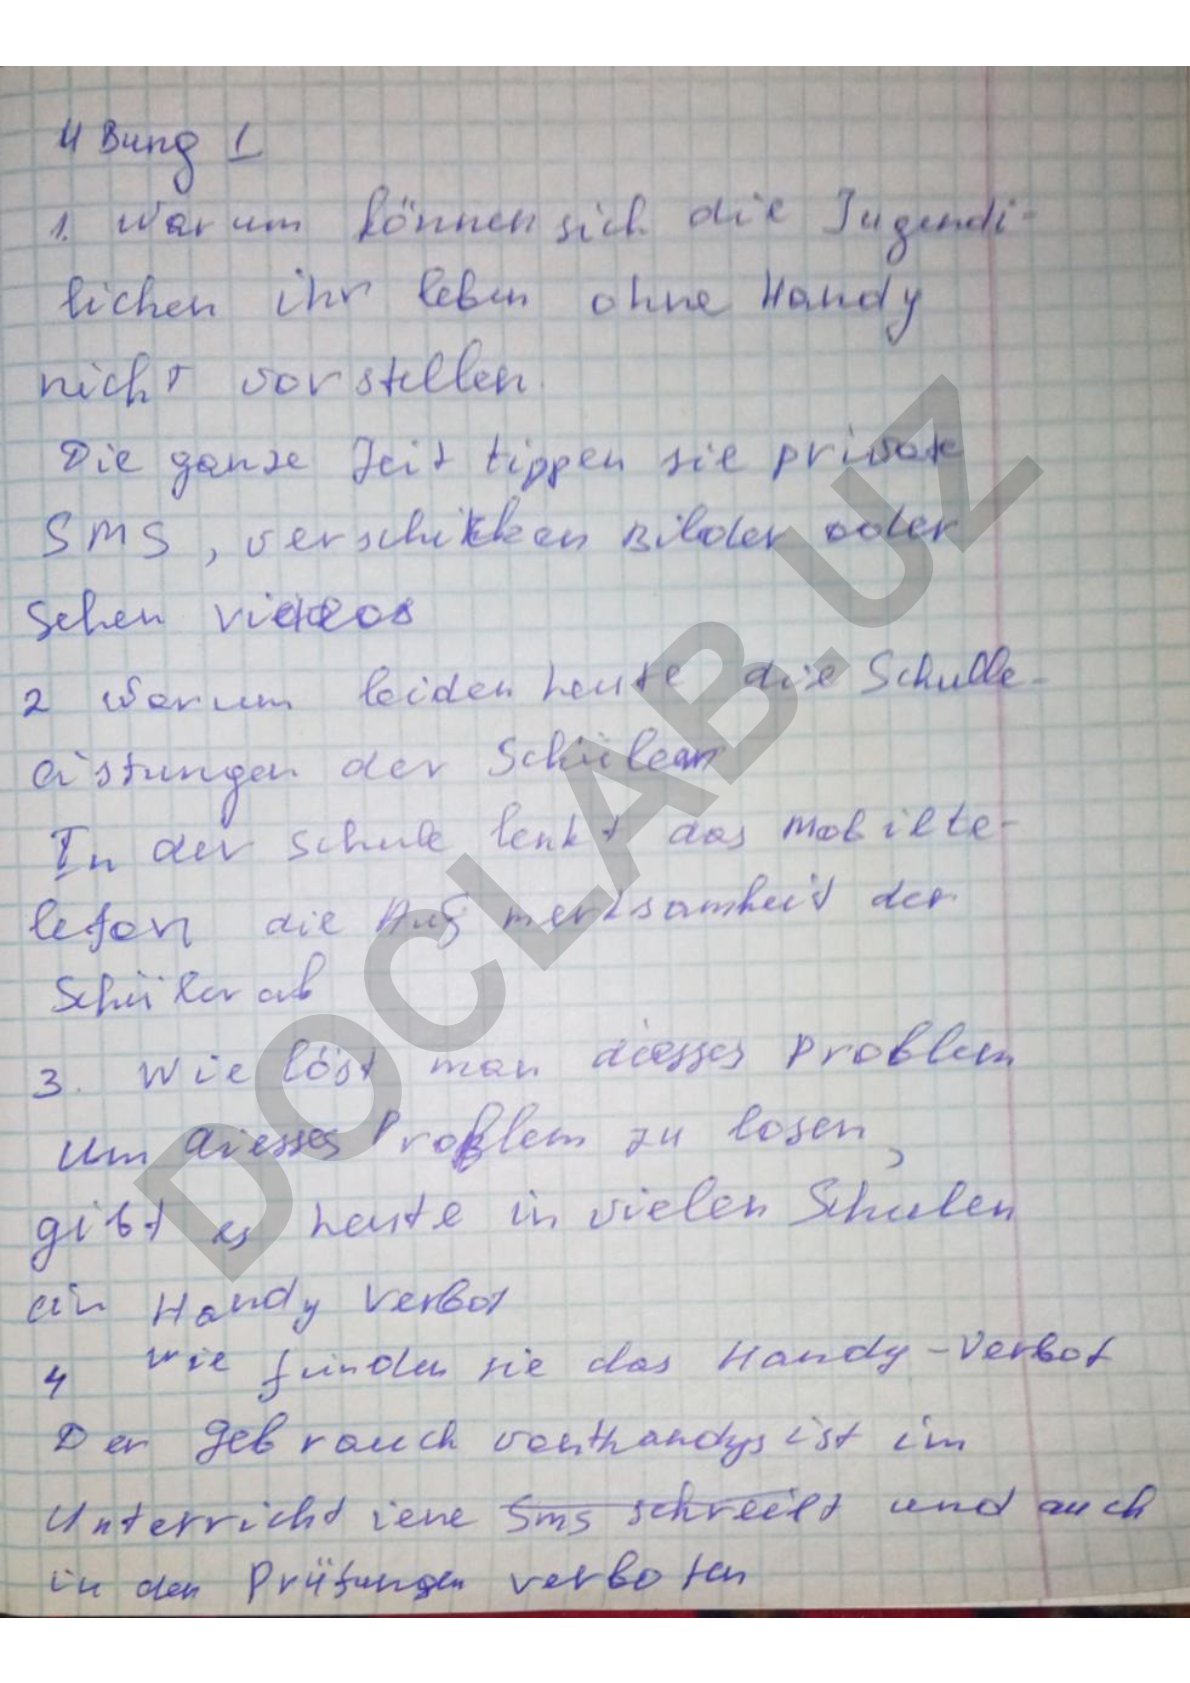 4 Bung 1
1. Warum können sich die Jugendi-
lichen ihr leben ohne Handy
nicht vorstellen.
Die ganze Zeit tippen sie private
SMS, verschikken Bilder oder
Sehen videos
2 Warum leiden heute die Schulle-
istungen der Schülern
In der Schule lenkt das Mobilte-
lefon die Aufmerksamkeit der
Schüler ab
3. Wie löst man diesses Problem
Um diesses Problem zu losen,
gibt es heute in vielen Schulen
ein Handy verbot
4 Wie finden sie das Handy-Verbot
Der gebrauch vonhandys ist im
Unterricht iene Sms schreibt und auch
in den Prüfungen verboten
DOCLAB.UZ